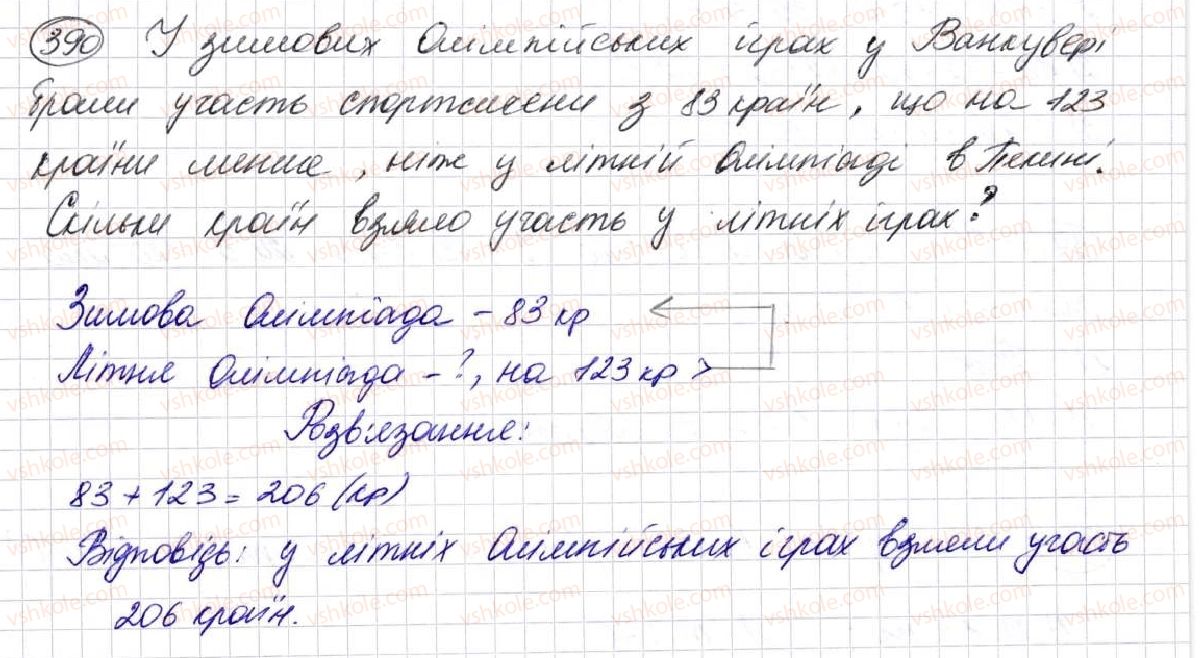 390 У зимових Олімпійських іграх у Ванкувері
брали участь спортсмени з 83 країн, що на 123
країни менше, ніж у літній Олімпіаді в Пекіні.
Скільки країн взяло участь у літніх іграх?
Зимова Олімпіада – 83 кр
Літня Олімпіада – ?, на 123 кр >
Розв'язання:
83 + 123 = 206 (кр)
Відповідь: у літніх Олімпійських іграх взяли участь
206 країн.